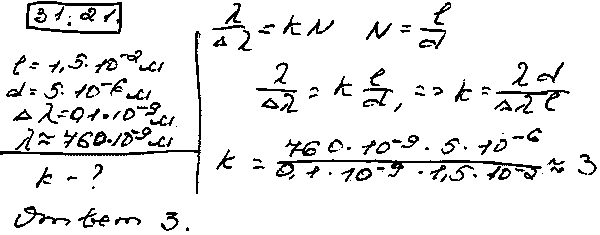 31.21.
l = 1,5·10⁻² м
d = 5·10⁻⁶ м
Δλ = 0,1·10⁻⁹ м
λ ≈ 760·10⁻⁹ м
k - ?
λ/Δλ = kN N = l/d
λ/Δλ = k l/d, => k = λd/Δλl
k = 760·10⁻⁹·5·10⁻⁶/0,1·10⁻⁹·1,5·10⁻² ≈ 3
Ответ 3.